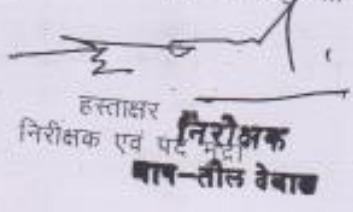 हस्ताक्षर
निरीक्षक एवं पद मुद्रा
निरीक्षक
नाप-तौल